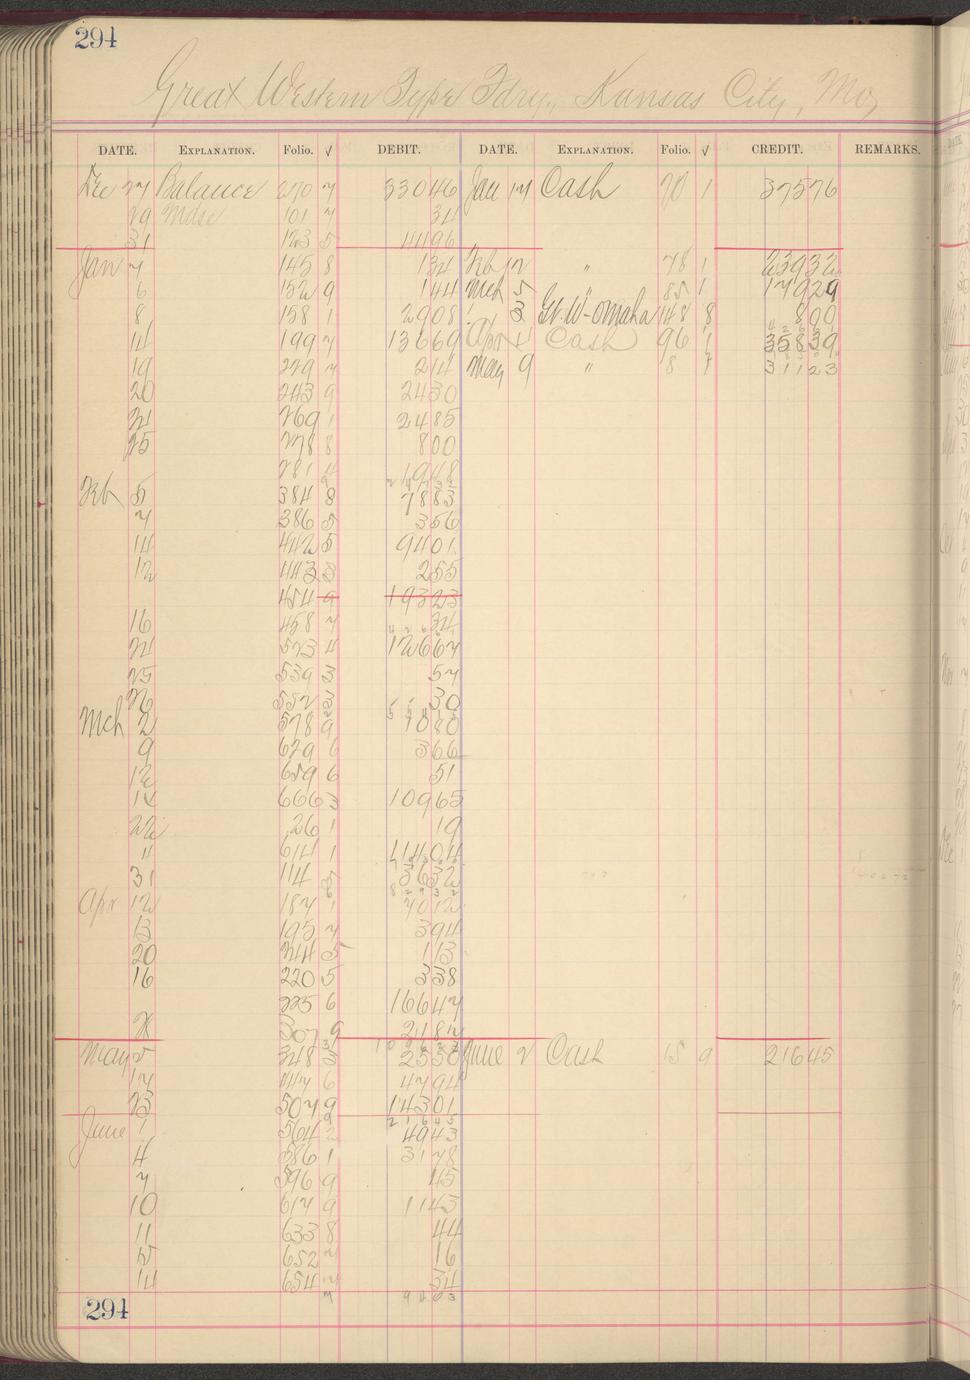 294
Great Western Type Fdry., Kansas City, Mo,
DATE. EXPLANATION. Folio. √ DEBIT. DATE. EXPLANATION. Folio. √ CREDIT. REMARKS.
Dec 27 Balance 270 7 33046 Jan 17 Cash 70 1 37576
29 Mdse 101 7 34
31 123 5 4496
Jan 7 145 8 134 Feb 12 " 78 1 23932
6 152 9 144 Mch 5 " 85 1 17929
8 158 1 2908 3 Gt. W-Omaha 148 8 800
14 199 7 13669 Apr 4 Cash 96 1 35839
19 229 7 214 May 9 " 8 31123
20 243 9 2430
21 269 1 2485
25 278 8 800
281 4 1948
Feb 5 384 8 7883
7 386 5 356
14 442 5 9401
12 443 3 255
454 9 19323
16 458 7 34
24 523 4 12667
25 539 3 57
26 552 3 30
Mch 2 578 9 1080
9 629 6 366
12 659 6 51
14 666 3 10965
22 26 1 19
" 64 1 11404
31 114 3632
Apr 12 187 1 7012
13 195 7 394
20 244 5 113
16 220 5 338
225 6 16647
307 9 2187
May 5 348 3 2530 June 2 Cash 15 9 21645
17 447 6 4794
23 507 9 14301
2 1 6 4 5
June 1 564 2 4943
4 586 1 3178
7 596 9 45
10 617 9 1143
11 633 8 44
15 652 7 16
14 654 7 34
9 4 0 3
294